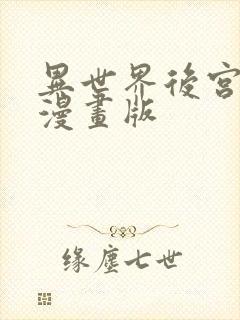 異世界後宮
漫畫版
缘塵七世